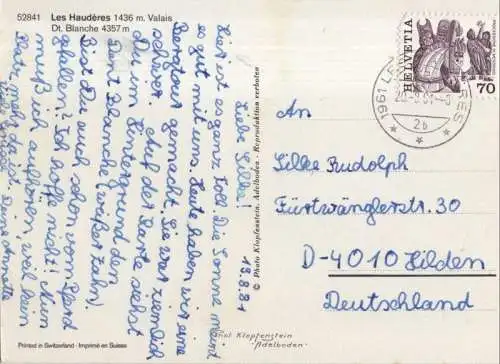 52841 Les Haudères 1436 m. Valais
Dt. Blanche 4357 m
13.8.81
Liebe Silke!
hier ist es ganz toll. Die Sonne meint
es gut mit uns. Heute haben wir eine
Bergtour gemacht. Sie war ziemlich
schwer. Auf der Karte siehst
Du im Hintergrund den
Dent Blanche (weißer Zahn)
Bist Du auch schon vom Pferd
gefallen? Ich hoffe nicht! Nun
muß ich aufhören, weil kein
Platz mehr ist. Deine Annette
Viele Grüße
Printed in Switzerland - Imprimé en Suisse
© Photo Klopfenstein, Adelboden - Reproduktion verboten
Photo Klopfenstein
Adelboden
HELVETIA
70
1961
2b
An
Silke Rudolph
Fürtwänglerstr. 30
D-4010 Hilden
Deutschland